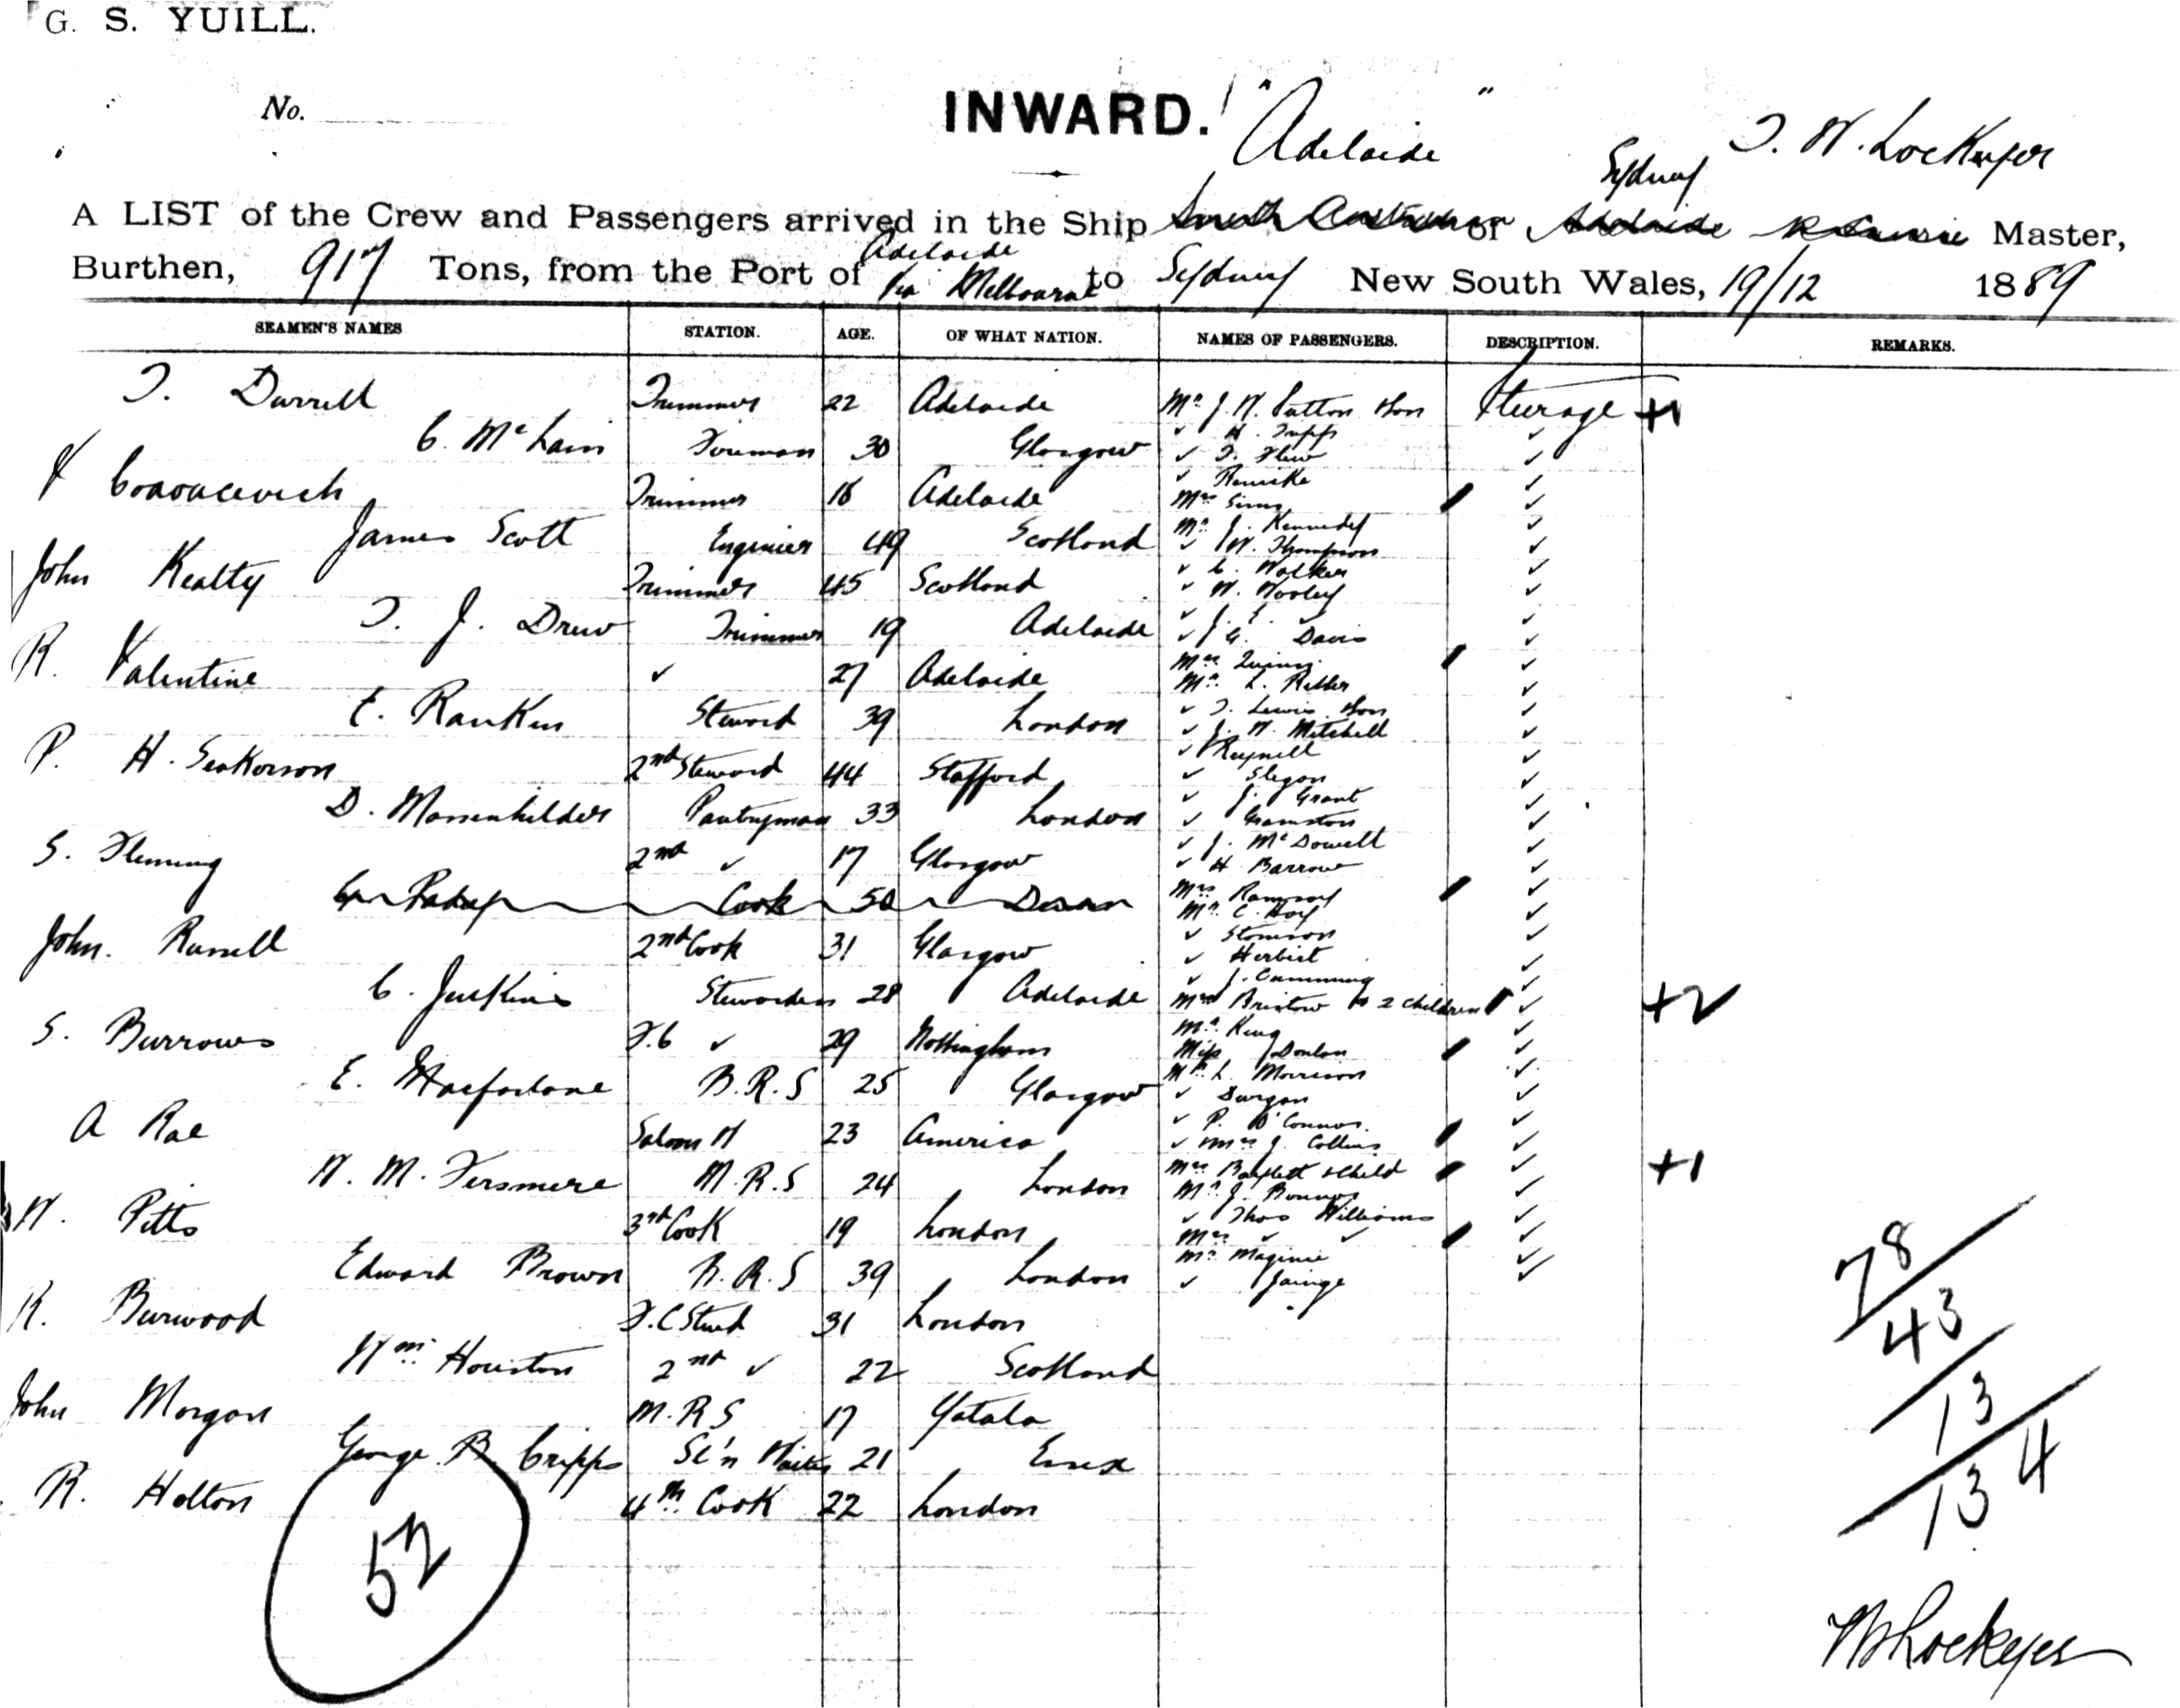 G. S. YUILL.
No.
INWARD. "Adelaide" Sydney T. W. Lockyer
A LIST of the Crew and Passengers arrived in the Ship South Australian of Adelaide Master,
Burthen, 917 Tons, from the Port of Adelaide via Melbourne to Sydney New South Wales, 19/12 1889
SEAMEN'S NAMES STATION. AGE. OF WHAT NATION. NAMES OF PASSENGERS. DESCRIPTION. REMARKS.
T. Durrell Trimmer 22 Adelaide
C. McLain Foreman 30 Glasgow
Trimmer 18 Adelaide
James Scott Engineer 49 Scotland
John Kealty Trimmer 45 Scotland
T. J. Drew Trimmer 19 Adelaide
R. Valentine ✓ 27 Adelaide
E. Rankin Steward 39 London
P. H. 2nd Steward 44 Stafford
D. Pantryman 33 London
S. Fleming 2nd ✓ 17 Glasgow
Cook 50 Devon
John. Russell 2nd Cook 31 Glasgow
C. Juskins Stewardess 28 Adelaide
S. Burrows F.C ✓ 29 Nottingham
E. Macfarlane B.R.S 25 Glasgow
A Rae Saloon W 23 America
W. M. Fersmere M.R.S 24 London
W. Pitts 3rd Cook 19 London
Edward Brown B.R.S 39 London
R. Burwood F.C Stwd 31 London
Wm. Houston 2nd ✓ 22 Scotland
John Morgan M.R.S 17 Yatala
George B. Cripps Sl'n Waiter 21 Essex
R. Holton 4th Cook 22 London
52
Mr J. W. Sutton & son Steerage +1
✓ H. Tripp ✓
✓ T. Flew ✓
✓ Renicke ✓
Mrs Sims ✓
Mr. J. Kennedy ✓
✓ W. Thompson ✓
✓ C. Walker ✓
✓ W. Wooley ✓
✓ J. E. ✓
✓ J. G. Davis ✓
Mrs ✓
Mr. L. Ritter ✓
✓ T. Lewis & son ✓
✓ J. W. Mitchell ✓
✓ Reynell ✓
✓ Slegon ✓
✓ J. Grant ✓
✓ Gramston ✓
✓ J. McDowell ✓
✓ H. Barrow ✓
Mrs Ramsay ✓
Mr. C. Hoy ✓
✓ ✓
✓ Herbert ✓
✓ J. Cumming ✓
Mrs Bristow & 2 children ✓ +2
Mr. King ✓
Miss Donlan ✓
Mr L. Morrison ✓
✓ Durgan ✓
✓ P. O'Connor. ✓
✓ Mrs J. Collins ✓
Mrs Bartlett & child ✓ +1
Mr. J. ✓
✓ Thos Williams ✓
Mrs ✓ ✓ ✓
Mr. Maginie ✓
✓ Gainge ✓
78
43
13
134
W Lockyer